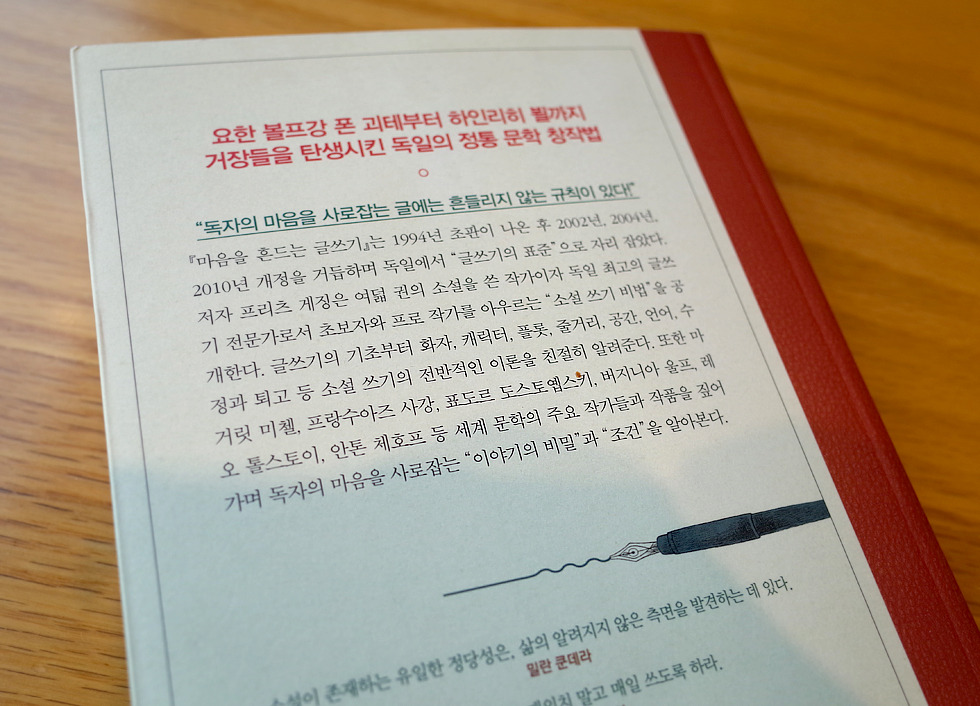 요한 볼프강 폰 괴테부터 하인리히 뵐까지
거장들을 탄생시킨 독일의 정통 문학 창작법
“독자의 마음을 사로잡는 글에는 흔들리지 않는 규칙이 있다!”
『마음을 흔드는 글쓰기』는 1994년 초판이 나온 후 2002년, 2004년,
2010년 개정을 거듭하며 독일에서 “글쓰기의 표준”으로 자리 잡았다.
저자 프리츠 게징은 여덟 권의 소설을 쓴 작가이자 독일 최고의 글쓰
기 전문가로서 초보자와 프로 작가를 아우르는 “소설 쓰기 비법”을 공
개한다. 글쓰기의 기초부터 화자, 캐릭터, 플롯, 줄거리, 공간, 언어, 수
정과 퇴고 등 소설 쓰기의 전반적인 이론을 친절히 알려준다. 또한 마
거릿 미첼, 프랑수아즈 사강, 표도르 도스토옙스키, 버지니아 울프, 레
오 톨스토이, 안톤 체호프 등 세계 문학의 주요 작가들과 작품을 짚어
가며 독자의 마음을 사로잡는 “이야기의 비밀”과 “조건”을 알아본다.
소설이 존재하는 유일한 정당성은, 삶의 알려지지 않은 측면을 발견하는 데 있다.
밀란 쿤데라
말고 매일 쓰도록 하라.